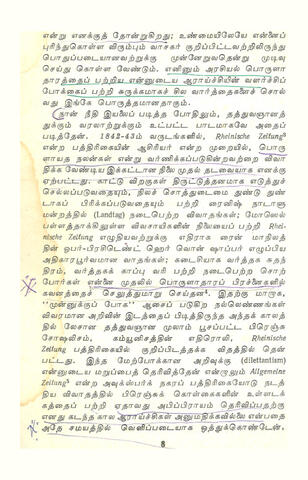 என்று எனக்குத் தோன்றுகிறது; உண்மையிலேயே என்னைப்
புரிந்துகொள்ள விரும்பும் வாசகர் குறிப்பிட்டவற்றிலிருந்து
பொதுப்படையானவற்றுக்கு முன்னேறுவதென்று முடிவு
செய்து கொள்ள வேண்டும். எனினும் அரசியல் பொருளா
தாரத்தைப் பற்றிய என்னுடைய ஆராய்ச்சியின் வளர்ச்சிப்
போக்கைப் பற்றி சுருக்கமாகச் சில வார்த்தைகளைச் சொல்
வது இங்கே பொருத்தமானதாகும்.
நான் நீதி இயலைப் படித்த போதிலும், தத்துவஞானத்
துக்கும் வரலாற்றுக்கும் உட்பட்ட பாடமாகவே அதைப்
படித்தேன். 1842-43ம் வருடங்களில், Rheinische Zeitung
என்ற பத்திரிகையின் ஆசிரியர் என்ற முறையில், பொரு
ளாயத நலன்கள் என்று வர்ணிக்கப்படுகின்றவற்றை விவா
திக்க வேண்டிய இக்கட்டான நிலை முதல் தடவையாக எனக்கு
ஏற்பட்டது. காட்டு விறகுகள் திருட்டுத்தனமாக எடுத்துச்
செல்லப்படுவதையும், நிலச் சொத்துடைமை துண்டு துண்
டாகப் பிரிக்கப்படுவதையும் பற்றி ரைனிஷ் நாடாளு
மன்றத்தில் (Landtag) நடைபெற்ற விவாதங்கள்; மோஸெல்
பள்ளத்தாக்கிலுள்ள விவசாயிகளின் நிலையைப் பற்றி Rhei-
nische Zeitung எழுதியவற்றுக்கு எதிராக ரைன் மாநிலத்
தின் ஒபர்-பிரஸிடென்ட் ஹெர் வொன் ஷாப்பர் எழுப்பிய
அதிகாரபூர்வமான வாதங்கள்; கடைசியாக வர்த்தக சுதந்
திரம், வர்த்தகக் காப்பு வரி பற்றி நடைபெற்ற சொற்
போர்கள் என்னை முதலில் பொருளாதாரப் பிரச்னைகளில்
கவனத்தைச் செலுத்துமாறு செய்தன. இதற்கு மாறாக,
"முன்னுக்குப் போக" ஆசைப் படுகிற நல்லெண்ணங்கள்
விவரமான அறிவின் இடத்தைப் பிடித்திருந்த அந்தக் காலத்
தில் லேசான தத்துவஞான முலாம் பூசப்பட்ட பிரெஞ்சு
சோஷலிசம், கம்யூனிசத்தின் எதிரொலி, Rheinische
Zeitung பத்திரிகையில் குறிப்பிடத்தக்க விதத்தில் தென்
பட்டது. இந்த மேற்போக்கான அறிவுக்கு (dilettantism)
என்னுடைய மறுப்பைத் தெரிவித்தேன் என்றாலும் Allgemeine
Zeitung என்ற அவுக்ஸ்பர்க் நகரப் பத்திரிகையோடு நடத்
திய விவாதத்தில் பிரெஞ்சுக் கொள்கைகளின் உள்ளடக்
கத்தைப் பற்றி ஏதாவது அபிப்பிராயம் தெரிவிப்பதற்கு
எனது கடந்த கால ஆராய்ச்சிகள் அனுமதிக்கவில்லை என்பதை
அதே சமயத்தில் வெளிப்படையாக ஒத்துக்கொண்டேன்.
8